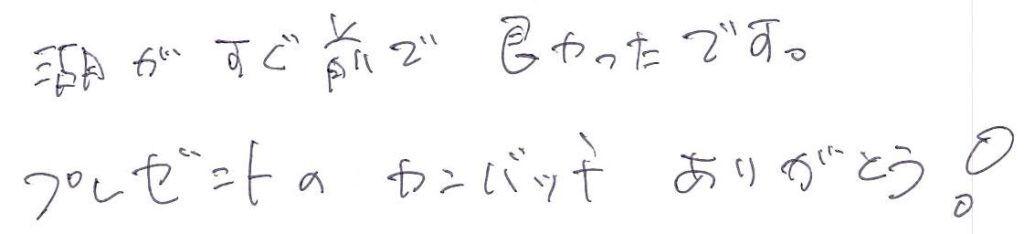 湖がすぐ前で 良かったです。
プレゼントの カンバッチ ありがとう!